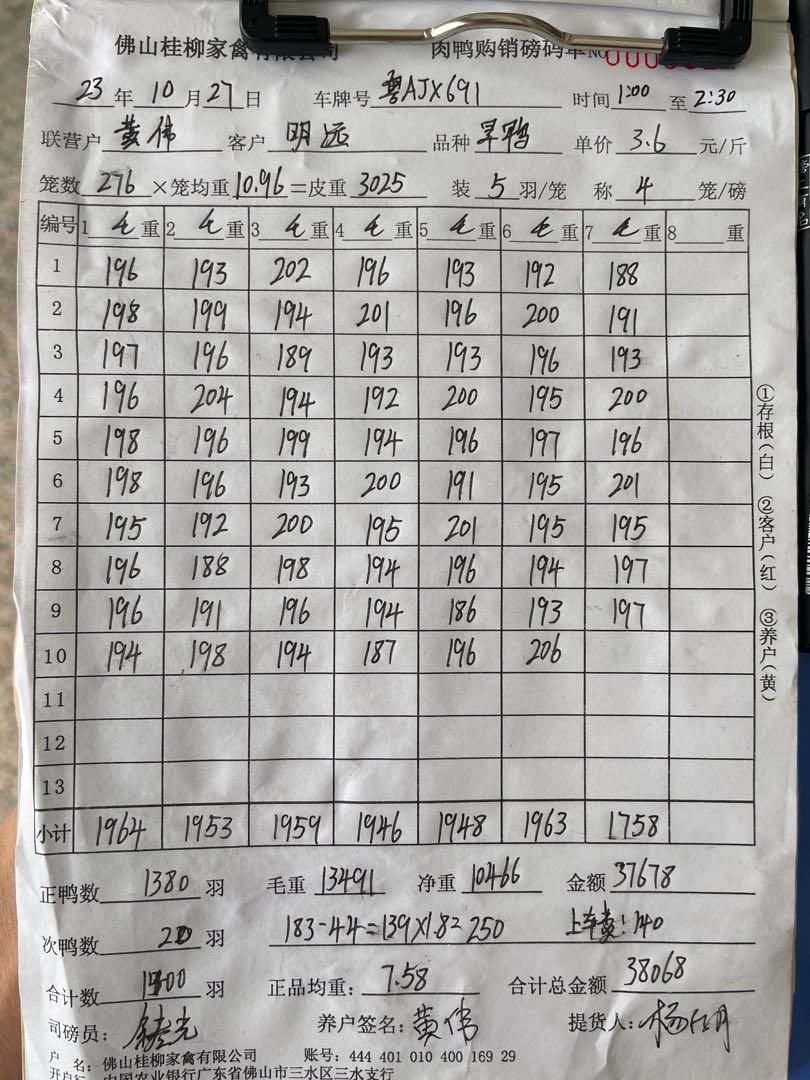 佛山桂柳家禽有限公司 肉鸭购销磅码单 NO
23年10月27日 车牌号 粤AJX691 时间1:00至2:30
联营户 黄伟 客户 明远 品种 旱鸭 单价 3.6 元/斤
笼数 276 ×笼均重 10.96 =皮重 3025 装 5 羽/笼 称 4 笼/磅
编号 1 毛 重 2 毛 重 3 毛 重 4 毛 重 5 毛 重 6 毛 重 7 毛 重 8 重
1 196 193 202 196 193 192 188
2 198 199 194 201 196 200 191
3 197 196 189 193 193 196 193
4 196 204 194 192 200 195 200
5 198 196 199 194 196 197 196
6 198 196 193 200 191 195 201
7 195 192 200 195 201 195 195
8 196 188 198 194 196 194 197
9 196 191 196 194 186 193 197
10 194 198 194 187 196 206
11
12
13
小计 1964 1953 1959 1946 1948 1963 1758
正鸭数 1380 羽 毛重 13491 净重 10466 金额 37678
次鸭数 20 羽 183-44=139×1.8=250 上车费:140
合计数 1400 羽 正品均重: 7.58 合计总金额 38068
司磅员: 养户签名: 黄伟 提货人: 杨
户 名: 佛山桂柳家禽有限公司 账号: 444 401 010 400 169 29
开户行 中国农业银行广东省佛山市三水区三水支行
①存根(白) ②客户(红) ③养户(黄)